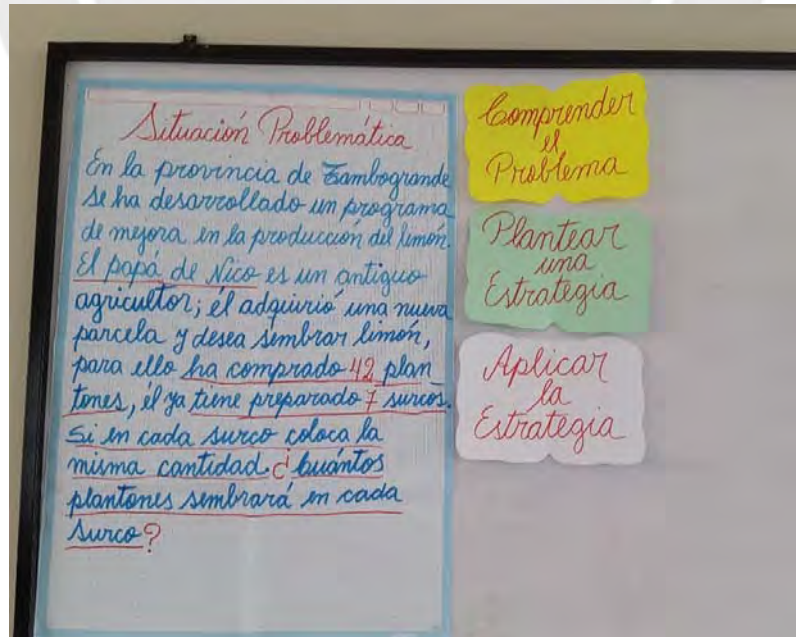 Situación Problemática
En la provincia de Tambogrande
se ha desarrollado un programa
de mejora en la producción del limón.
El papá de Nico es un antiguo
agricultor; él adquirió una nueva
parcela y desea sembrar limón,
para ello ha comprado 42 plan_
tones, él ya tiene preparado 7 surcos.
Si en cada surco coloca la
misma cantidad. ¿Cuántos
plantones sembrará en cada
surco?
Comprender
el
Problema
Plantear
una
Estrategia
Aplicar
la
Estrategia